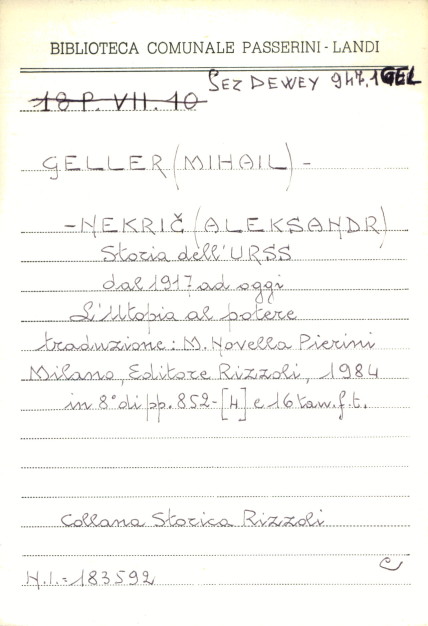 BIBLIOTECA COMUNALE PASSERINI - LANDI
SEZ DEWEY 947.1 GEL
18 P. VII. 10
GELLER (MIHAIL) -
- NEKRIČ (ALEKSANDR)
Storia dell'URSS
dal 1917 ad oggi
L'Utopia al potere
traduzione: M. Novella Pierini
Milano, Editore Rizzoli, 1984
in 8° di pp. 852-[4] e 16 tav. f.t.
Collana Storica Rizzoli
C
N.I.= 183592